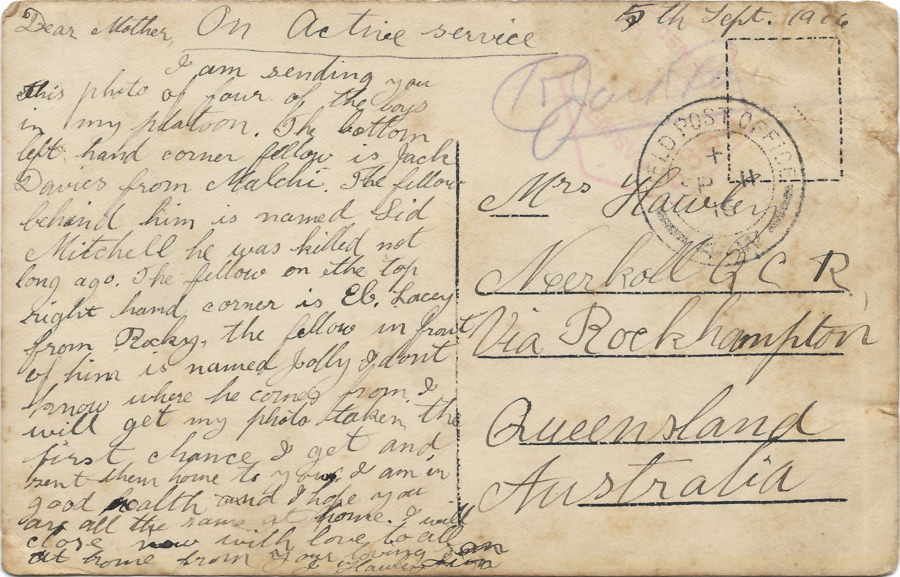 Dear Mother, On Active service
5th Sept. 1916
I am sending you
this photo of four of the boys
in my platoon. The bottom
left hand corner fellow is Jack
Davies from Malchi. The fellow
behind him is named Sid
Mitchell he was killed not
long ago. The fellow on the top
right hand corner is Eb. Lacey
from Rocky, the fellow in front
of him is named Jolly I dont
know where he comes from. I
will get my photo taken the
first chance I get and
sent them home to you. I am in
good health and I hope you
are all the same at home. I will
close now with love to all
at home from Your loving son
J Hawler
FIELD POST OFFICE
SP 11
16
Mrs Hawler
Neerkoll Q C R
Via Rockhampton
Queensland
Australia